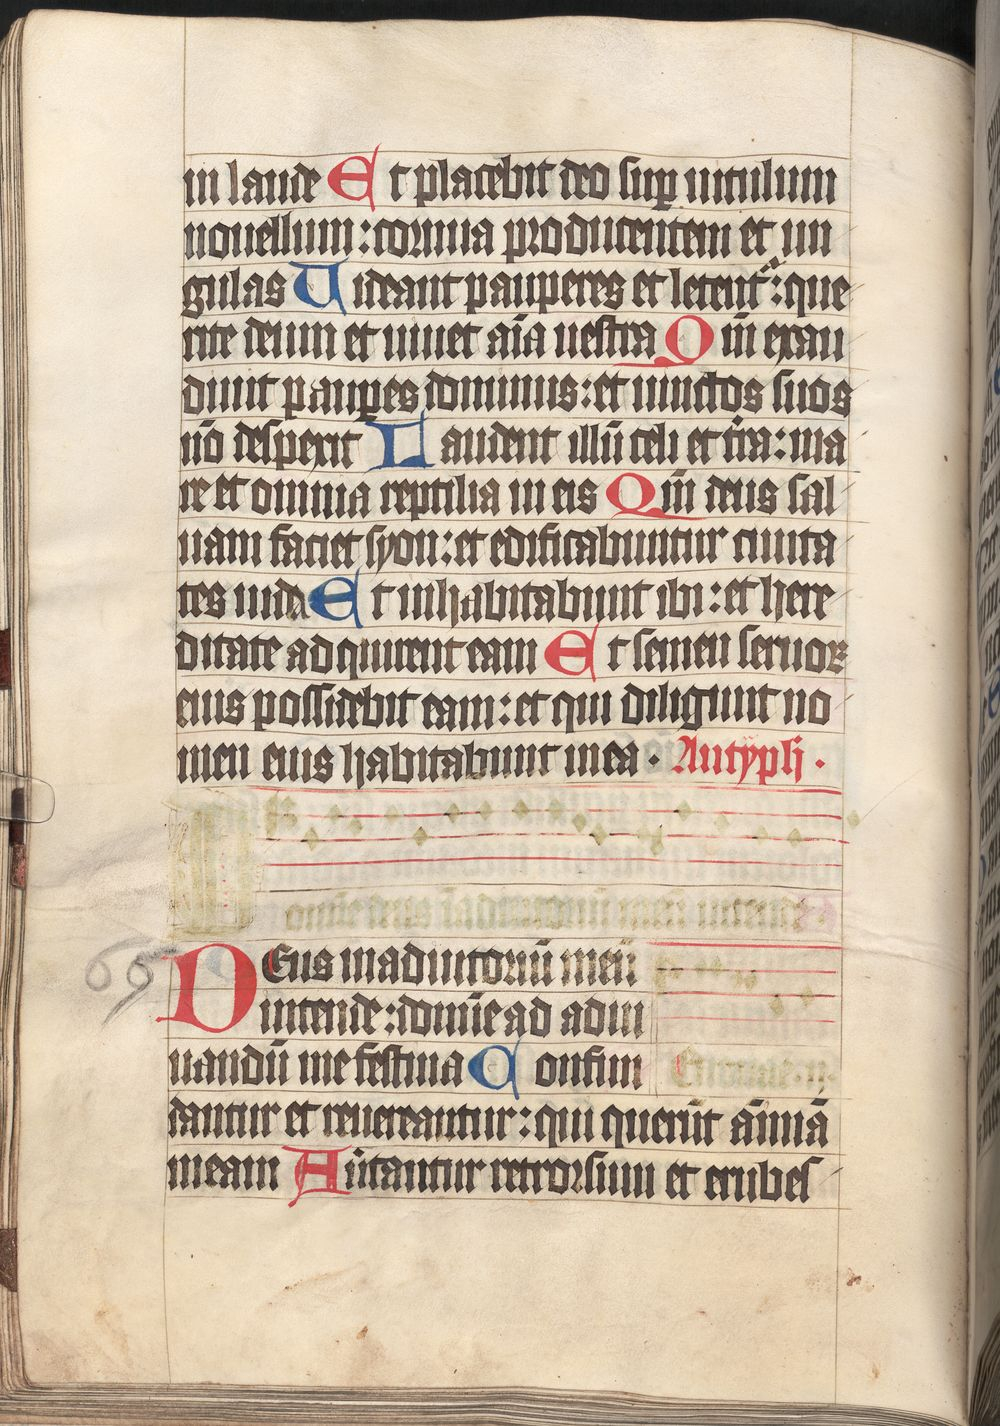 in laude Et placebit deo sup vitulum
nouellum: cornua producentem et un
gulas Uideant pauperes et letent': que
rite deum et uiuet aīa uestra Qm̄ exau
diuit paupes dominus: et uinctos suos
nō despexit Laudent illū celi et tr̄a: ma
re et omnia reptilia in eis Qm̄ deus sal
uam faciet syon: et edificabuntur ciuita
tes iuda Et inhabitabunt ibi: et here
ditate adquirent eam Et semen seruoꝝ
eius possidebit eam: et qui diligunt no
men eius habitabunt in ea. Antyph.
Domīe deus ī adiutoriū meū intende.
Deus in adiutoriū meū
intende: domīe ad adiu
uandū me festina Confun
Euouae.
dantur et reuereantur: qui querūt aīmā
meam Auertantur retrorsum et erubes
69